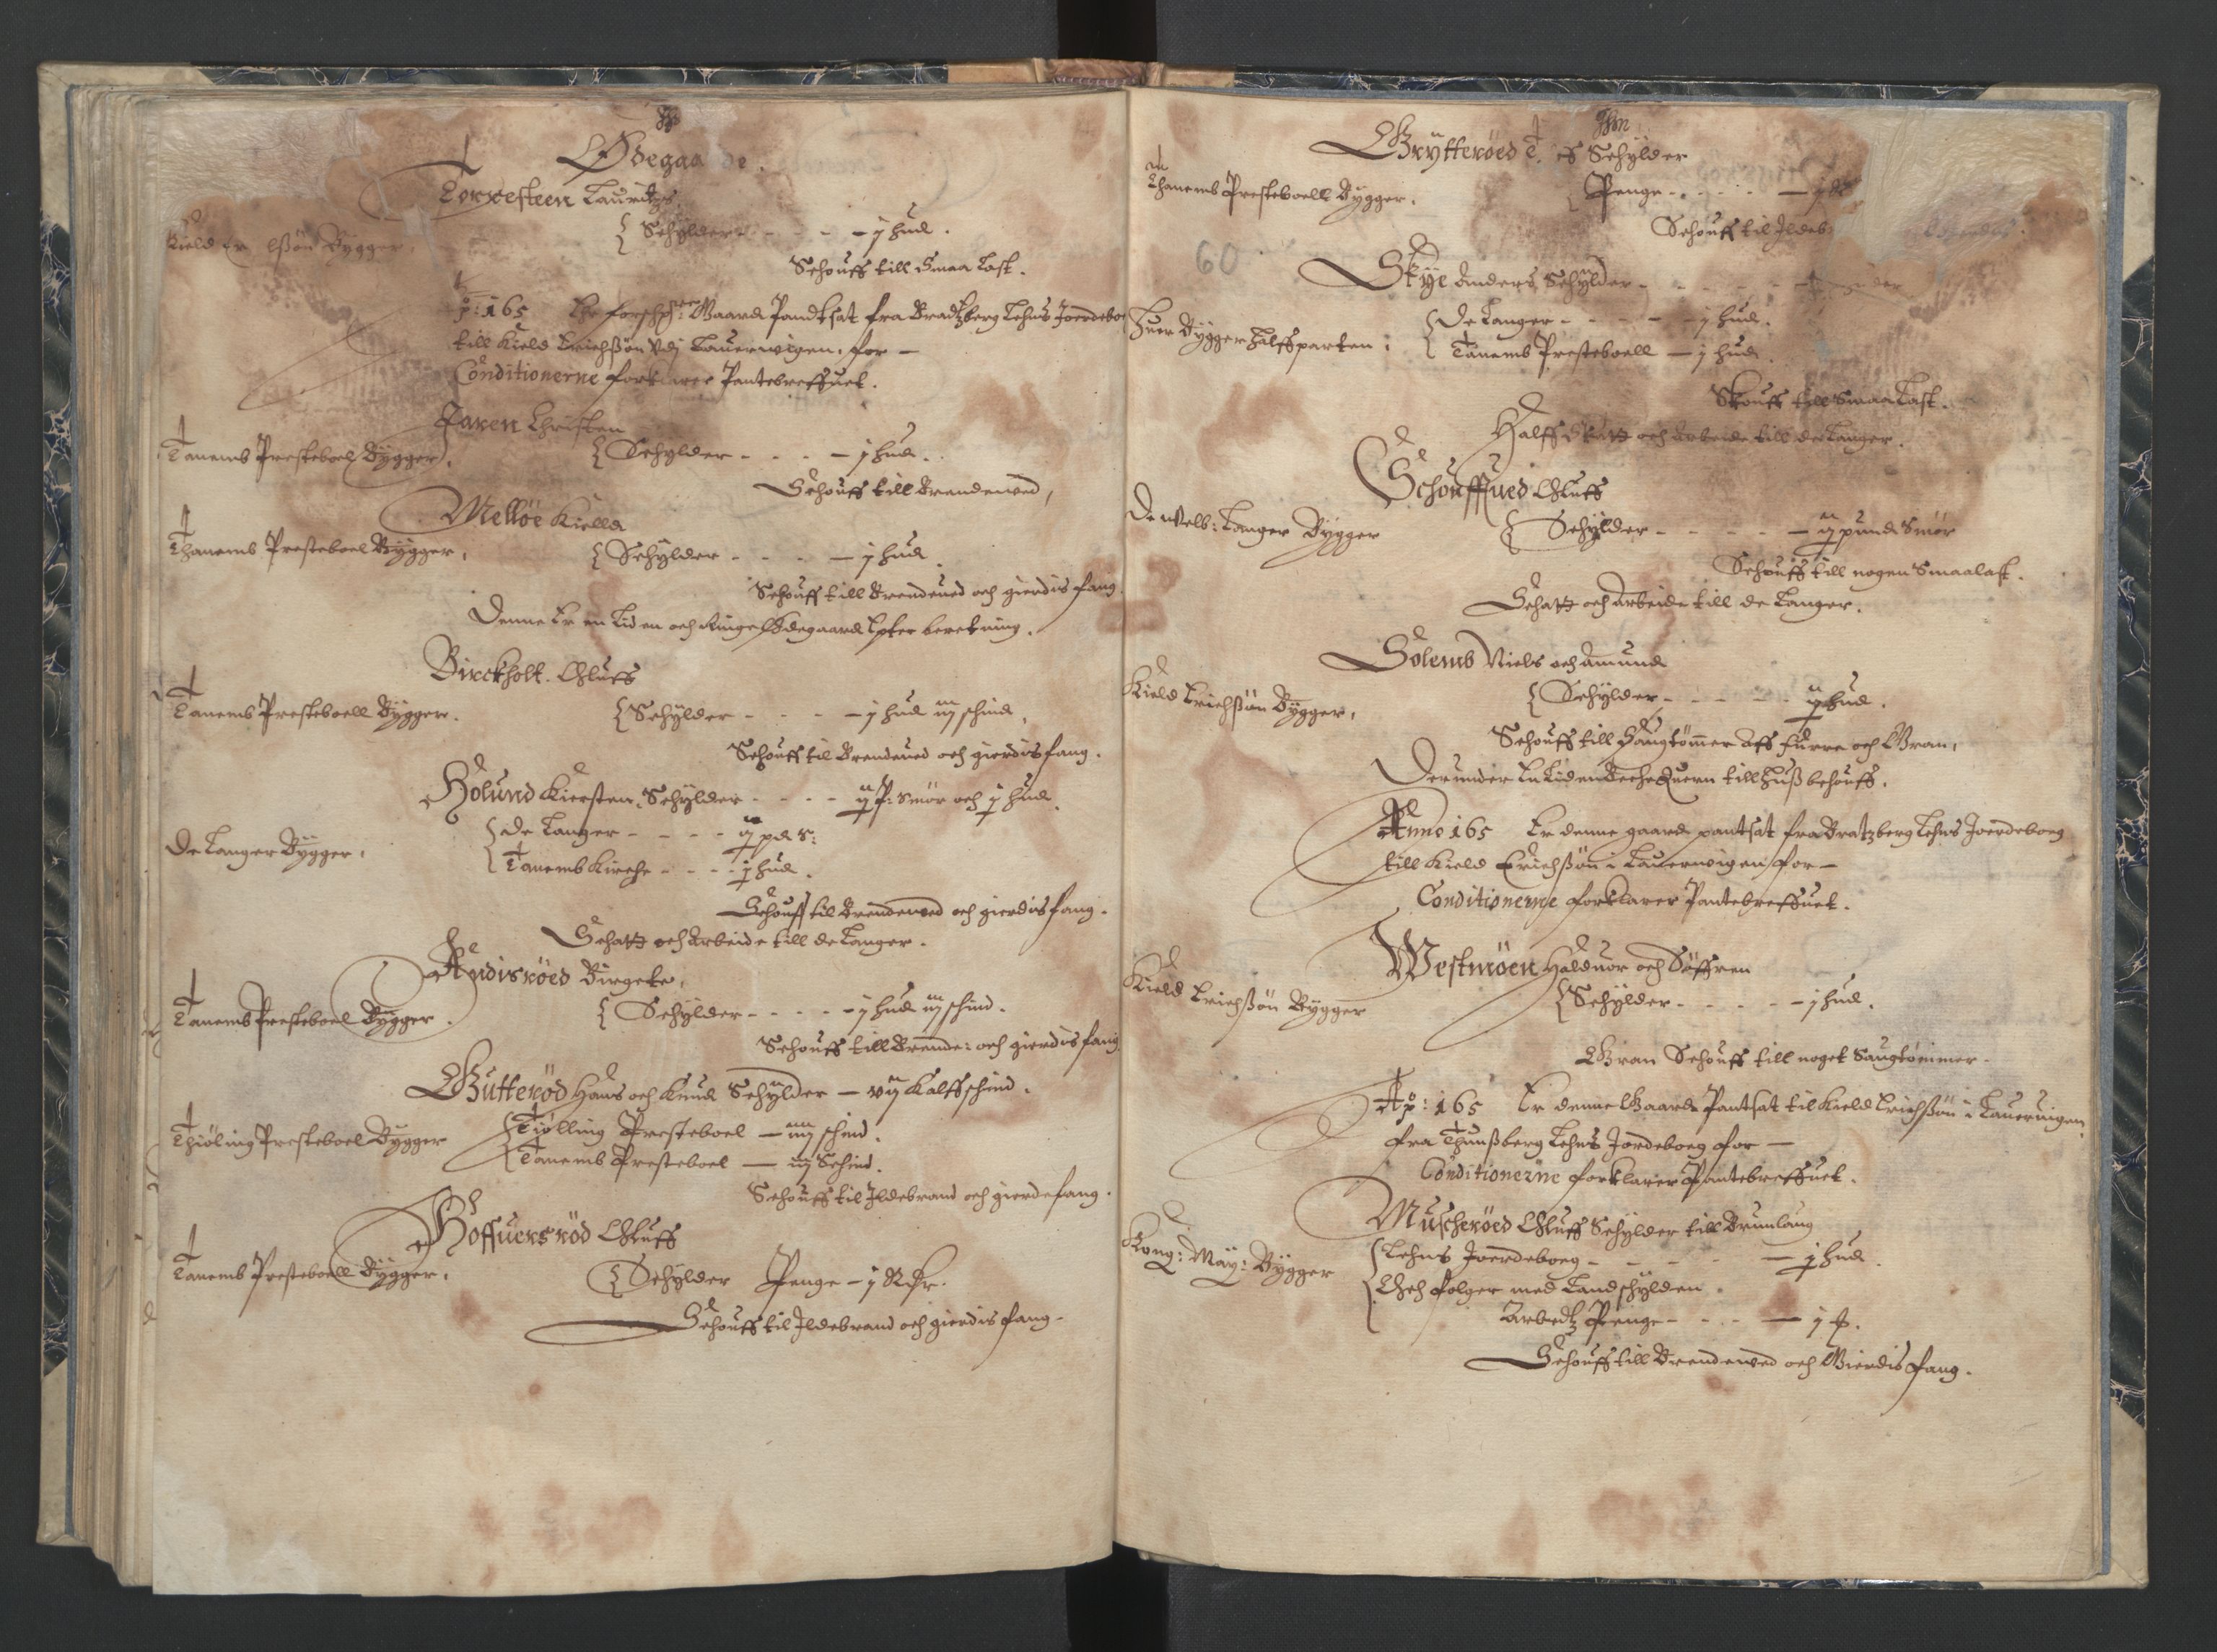 Ødegaa de.
Torresteen Lauridtz.
Kield Er ichßøn Bygger.
{ Schylder - - - - j hud.
Schouff till Smaa Last.
Ao: 165 Er forschr: Gaard Pandtsat fra Bradtzberg Lehns Joerdebo
till Kield Erichßøn Vdj Lauerwigen, for -
Conditionerne forklarer Pantebreffuet.
Faren Christen
Tanembs Presteboel Bygger.
{ Schylder - - - - j hud.
Schouff till Brendeved,
Melløe Kield
Thanembs Presteboel Bygger,
{ Schylder - - - - j hud
Schouff till Brendeued och gierdis fang.
Denne Er en Liden och Ringe Ødegaard Epter beretning.
Birckholt. Oluff
Tanembs Presteboell Bygger.
{ Schylder - - - - j hud iij schind.
Schouff til Brendeued och gierdis fang.
Holund Kiersten, Schylder - - - - ij P: Smør och j hud.
De Langer Bygger.
{ De Langer - - - - ij pd S:
{ Tanembs Kirche - - - - j hud.
Schouff til Brendeved och gierdis fang.
Schatt och Arbeide till de Langer.
Andisrøed Birgete,
Tanembs Presteboel Bygger.
{ Schylder - - - - - j hud iij schind.
Schouff till Brende: och gierdis fang
Gutterød Hans och Knud Schylder - vij Kalffschind.
Thiøling Presteboel Bygger
{ Tiølling Presteboel - iiij schind.
{ Tanembs Presteboel - iij Schind.
Schouff til Jldebrand och gierdefang.
Hoffuersrød Oluff
Tanembs Presteboell Bygger.
{ Schylder Penge - j Rdr.
Schouff til Jldebrand och gierdis fang.
Grytterøed Schylder
Thanembs Presteboell Bygger.
{ Penge - - - - j
Schouff til Jldeb
60
Skye Anders, Schylder - - - -
Huer Bygger halffparten.
{ De Langer - - - - - j hud.
{ Tanembs Presteboell - j hud.
Skouff till Smaa Last.
Halff Skatt och Arbeide till de Langer.
Schouffued Oluff
De Welb: Langer Bygger
{ Schylder - - - - - ij pund Smør
Schouff till nogen Smaalast.
Schatt och Arbeide till de Langer.
Solemb Niels och Amund
Kield Erichßøn Bygger,
{ Schylder - - - - - ij hud.
Schouff till Saugtømmer Aff furre och Gran,
Derunder En Liden Beche Quern till Huß behouff.
Anno 165 Er denne gaard pantsat fra Bratzberg Lehns Joerdebog
till Kield Erichßøn i Lauerwigen for -
Conditionerne forklarer Pantebreffuet.
Westmøen Haldvor och Søffren
Kield Erichßøn Bygger
{ Schylder - - - - - j hud.
Gran Schouff till noget Saugtømmer.
Ao: 165 Er denne Gaard Pantsat til Kield Erichßøn i Lauerwigen
fra Thunßberg Lehns Jordebog for -
Conditionerne forklarer Pantebreffuet.
Muscherøed Oluff Schylder till Brunlaug
Kong: May: Bygger
{ Lehns Joerdebog - - - - - j hud.
{ Och følger med Landschylden
Arbedtz Penge - - - - j
Schouff till Brendeved och Gierdis fang.